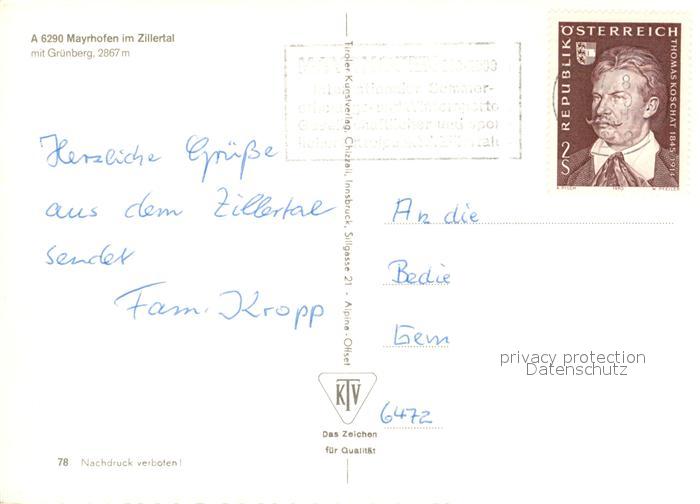 A 6290 Mayrhofen im Zillertal
mit Grünberg, 2867 m
Herzliche Grüße
aus dem Zillertal
sendet
Fam. Kropp
Tiroler Kunstverlag, Chizzali, Innsbruck, Sillgasse 21 - Alpina-Offset
KTV
Das Zeichen
für Qualität
78 Nachdruck verboten!
REPUBLIK ÖSTERREICH
THOMAS KOSCHAT 1845-1914
2 S
1970
An die
Bedie
Gem
6472
privacy protection
Datenschutz